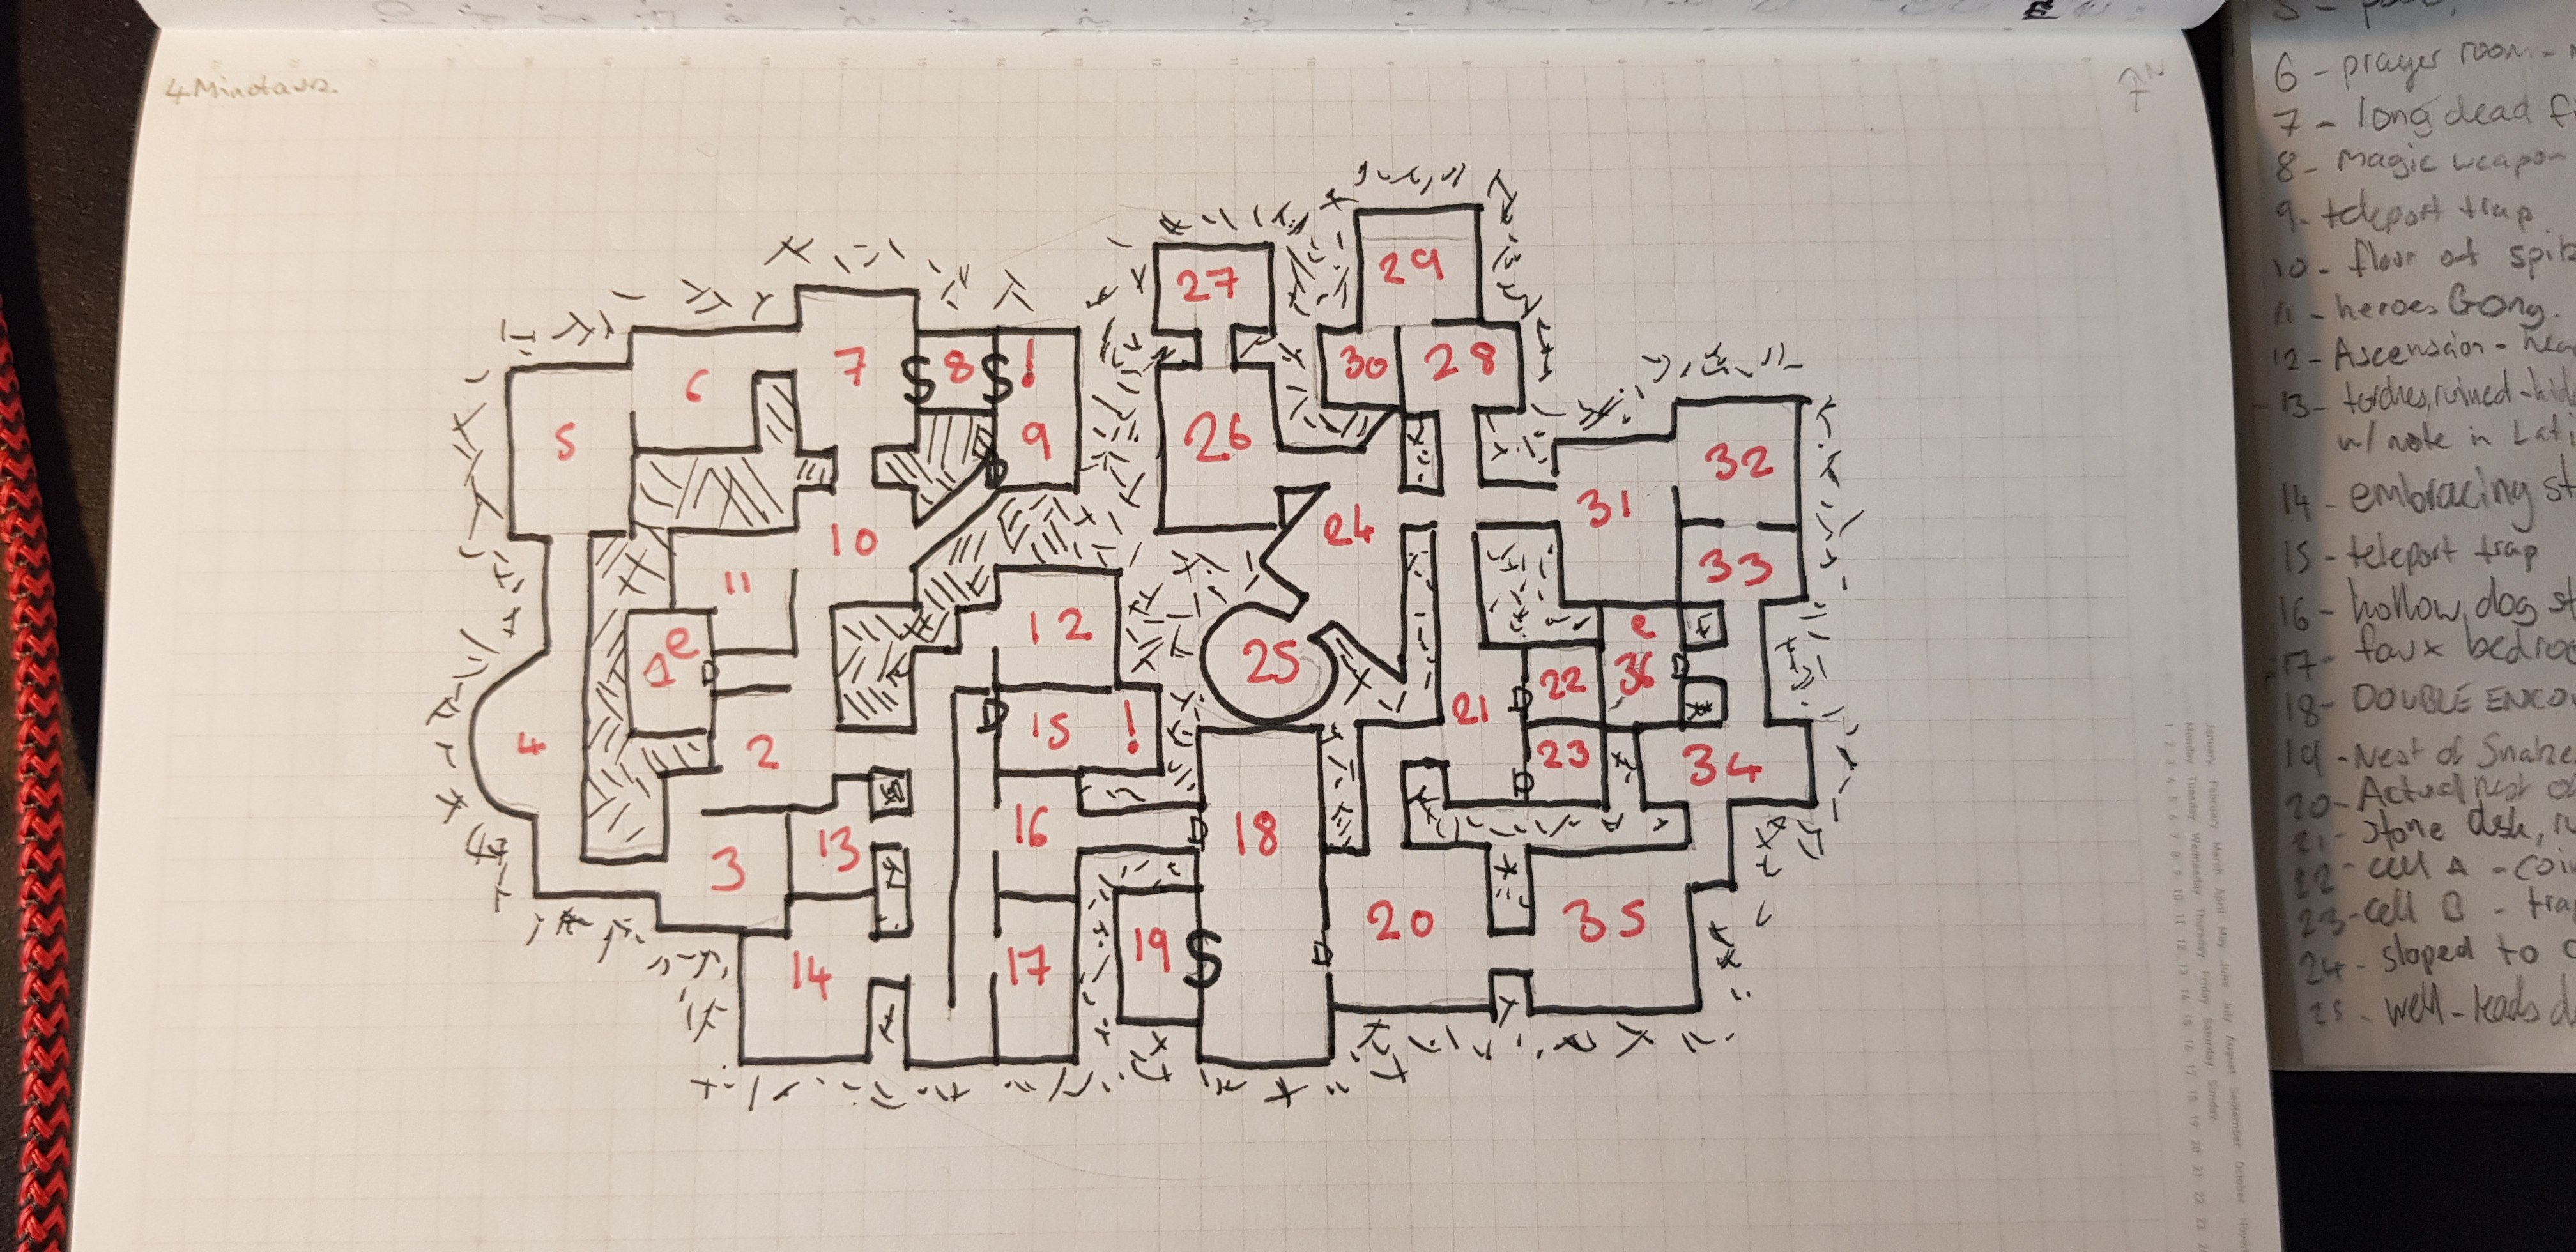 4 Minotaurs
27
29
7
8
!
30
28
6
9
26
5
32
31
10
24
11
33
12
e
1e
25
22
36
21
15
!
4
2
23
34
16
18
13
3
20
35
19
17
14
S
S
S
6 - prayer room -
7 - long dead
8 - Magic weapon
9 - teleport trap
10 - floor of
11 - heroes Gong.
12 - Ascension -
13 - torches, ruined -
w/ note in
14 - embracing
15 - teleport trap
16 - hollow dog
17 - faux
18 - DOUBLE
19 - Nest of
20 - Actual nest
21 - stone
22 - cell A -
23 - cell B -
24 - sloped to
25 - well - leads
January February March April May June July August September October
Monday Tuesday Wednesday Thursday Friday Saturday Sunday
1 2 3 4 5 6 7 8 9 10 11 12 13 14 15 16 17 18 19 20 21 22 23